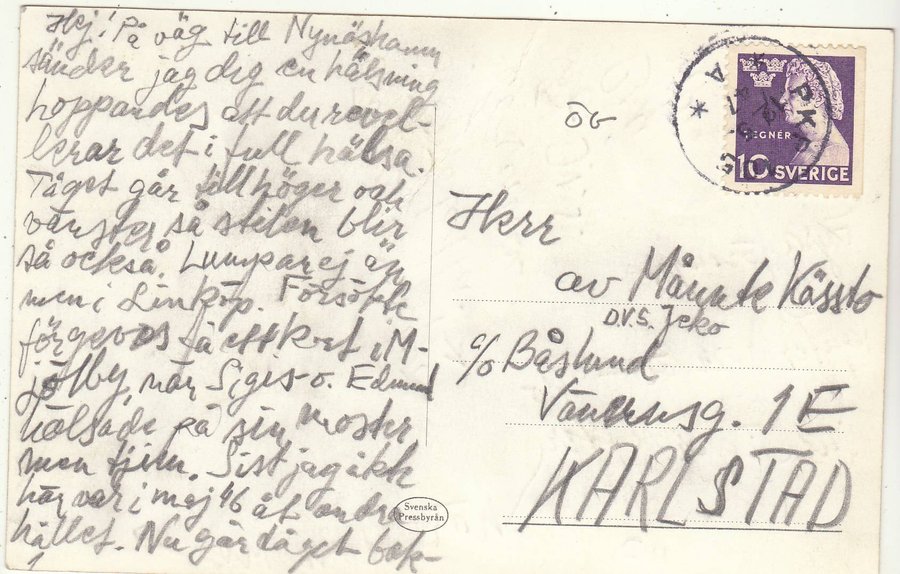 Hej! På väg till Nynäshamn
sänder jag dig en hälsning
hoppandes att du revel-
lerar det i full hälsa.
Tåget går till höger och
vänster så stilen blir
så också. Lumpar ej än
men i Linköp. Försökte
förgeves få ett kort i M-
jölby, när Sigis o. Edmund
hälsade på sin moster
men tjim. Sist jag åkte
här var i maj 46 åt andra
hållet. Nu går tåget bak-
Svenska
Pressbyrån
ÖG
PKXP
A
47
TEGNÉR
10 SVERIGE
Herr
av Månnte Kässto
D.V.S. Jeko
c/o Båslund
g. 1 E
KARLSTAD